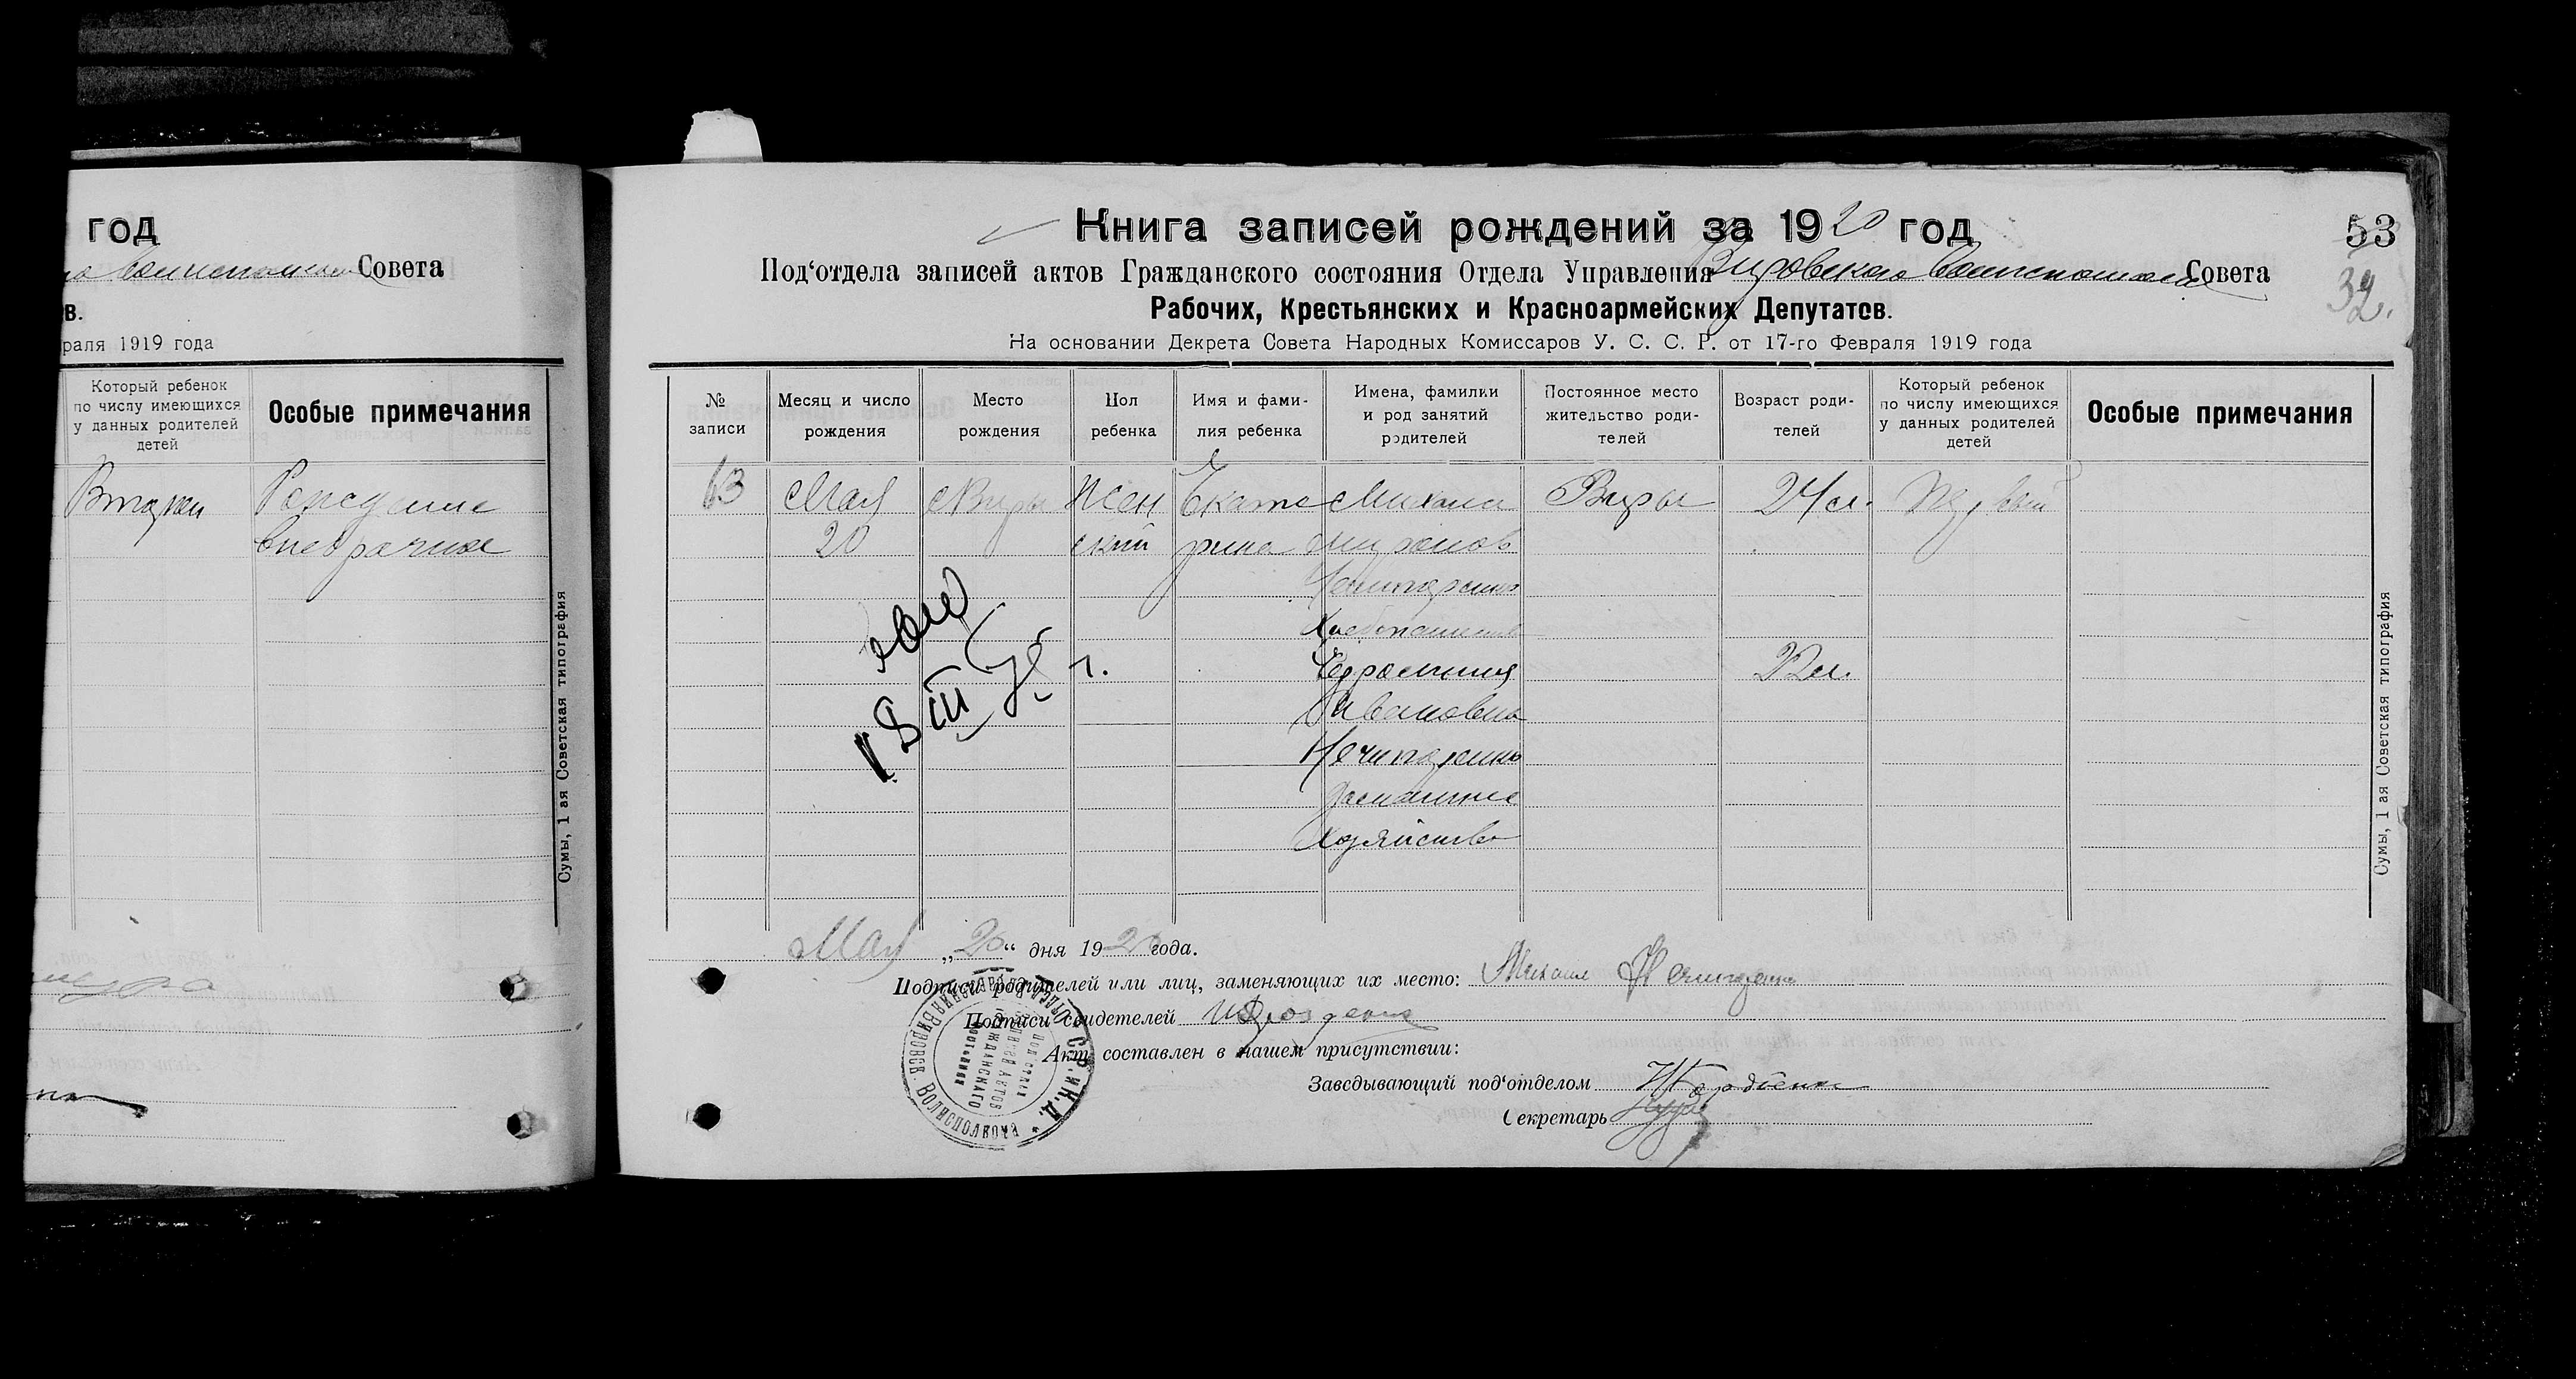 год
Совета
в.
раля 1919 года
Который ребенок
по числу имеющихся
у данных родителей
детей
Особые примечания
Рождение
внебрачное
Сумы, 1 ая Советская типография
Книга записей рождений за 1920 год
53
Под'отдела записей актов Гражданского состояния Отдела Управления Вировского Совета
32.
Рабочих, Крестьянских и Красноармейских Депутатов.
На основании Декрета Совета Народных Комиссаров У. С. С. Р. от 17-го Февраля 1919 года
№
записи
Месяц и число
рождения
Место
рождения
Пол
ребенка
Имя и фами-
лия ребенка
Имена, фамилии
и род занятий
родителей
Постоянное место
жительство роди-
телей
Возраст роди-
телей
Который ребенок
по числу имеющихся
у данных родителей
детей
Особые примечания
63 Мая с Виры Жен Екате Михаил Виры 24 л. Первый
20 ский рина
Нечипоренко
Хлебопашество
22 л.
Ивановна
Нечипоренко
Домашнее
Хозяйство
Сумы, 1 ая Советская типография
Мая „20“ дня 1920 года.
Подписи родителей или лиц, заменяющих их место: Михаил Нечипоренко
Подписи свидетелей
Акт составлен в нашем присутствии:
Заведывающий под'отделом
Секретарь